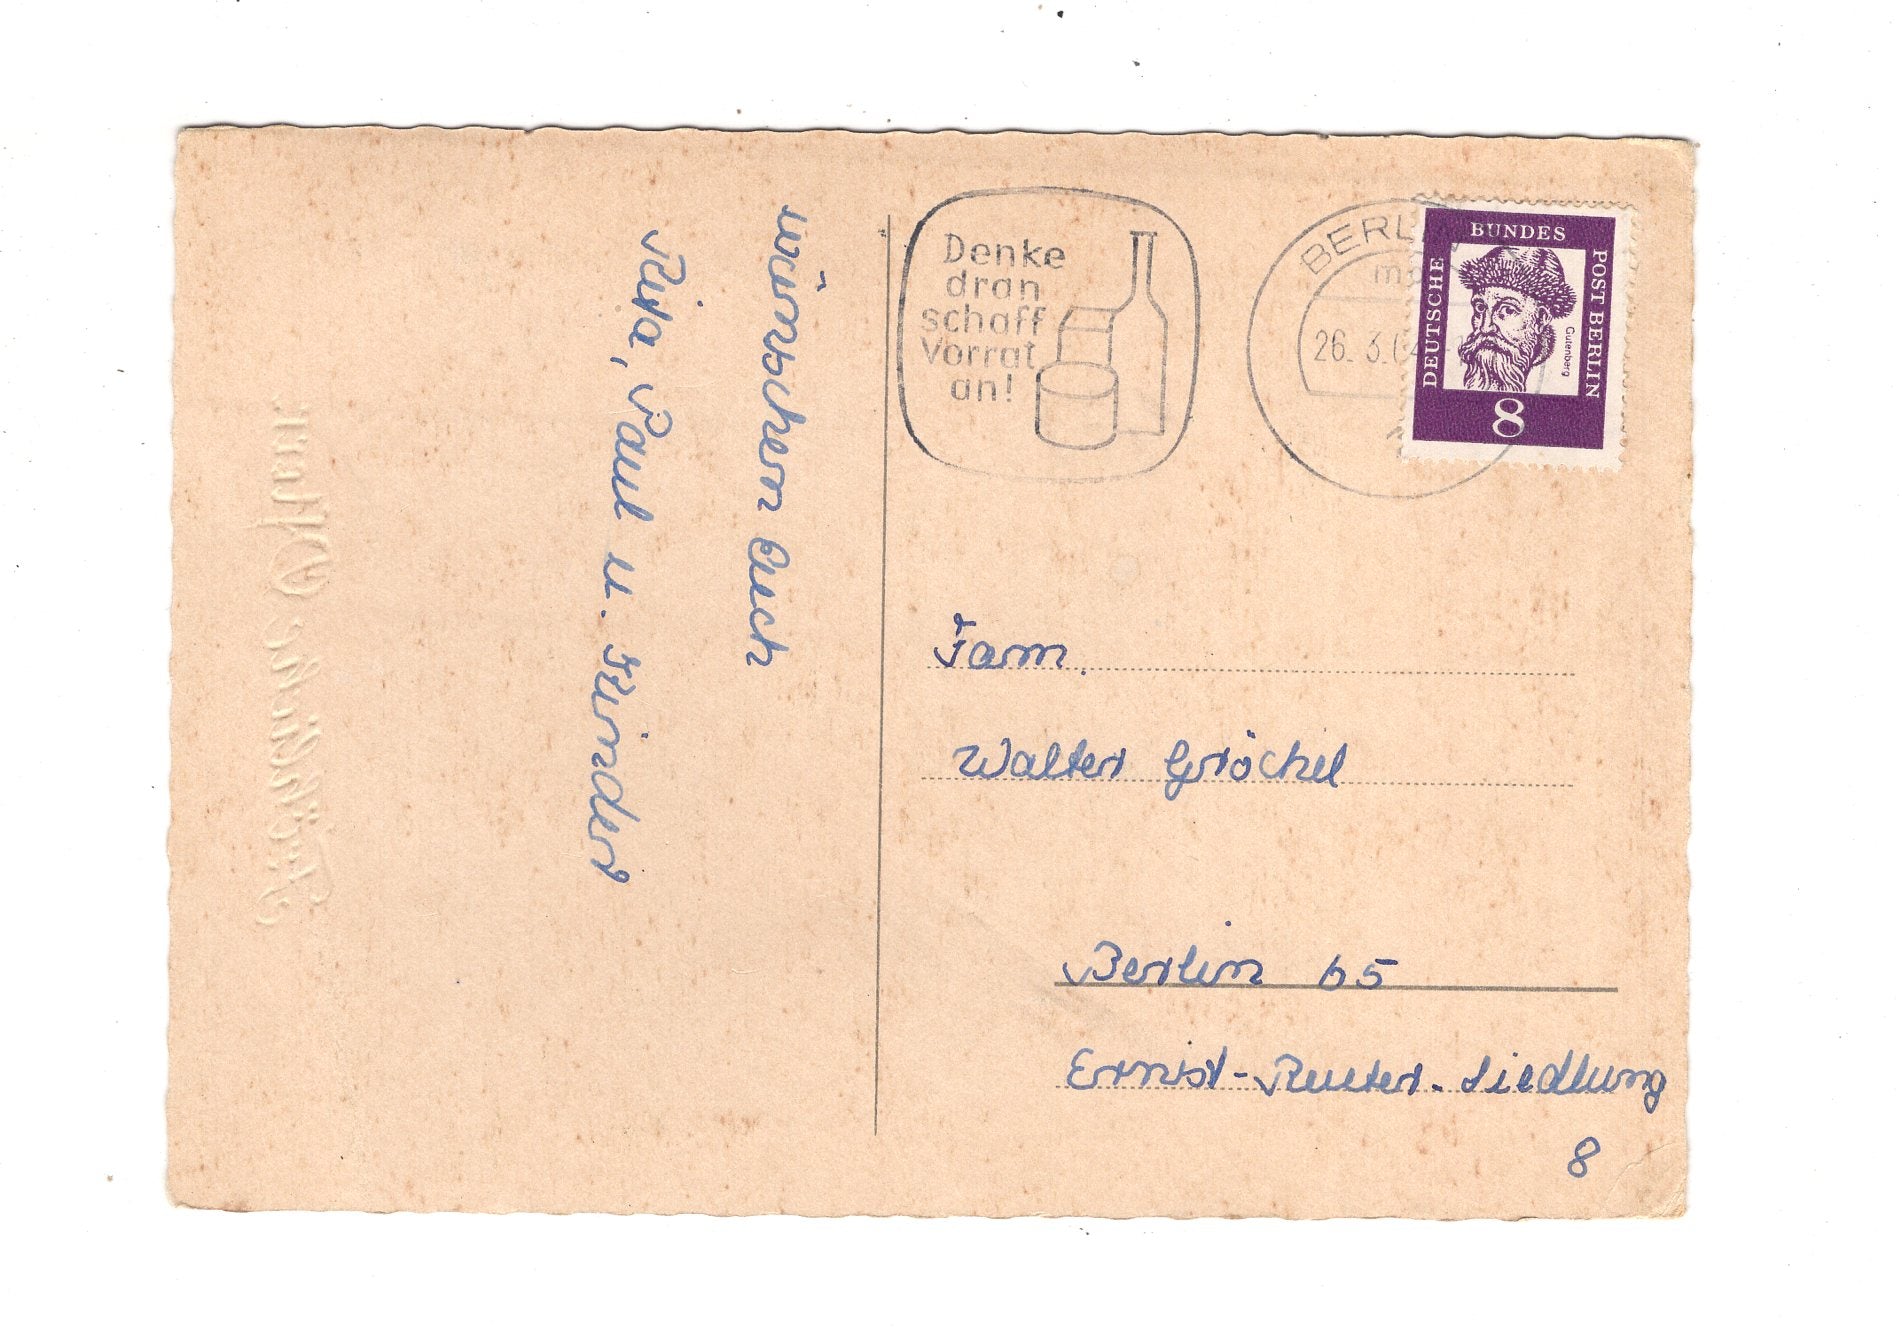 wünschen Euch
Rita, Paul u. Kinder
Fröhliche Ostern
Denke
dran
schaff
Vorrat
an!
BERLIN
26. 3. 64
DEUTSCHE
BUNDES
POST BERLIN
Gutenberg
8
Fam.
Walter Gröckel
Berlin 65
Ernst-Reuter-Siedlung
8